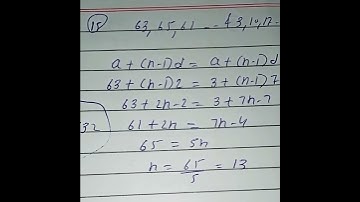 (15) 63, 65, 61 - - & 3, 10, 17 -
a + (n-1)d = a + (n-1)d
63 + (n-1)2 = 3 + (n-1)7
63 + 2n - 2 = 3 + 7n - 7
32 61 + 2n = 7n - 4
65 = 5n
n = 65/5 = 13